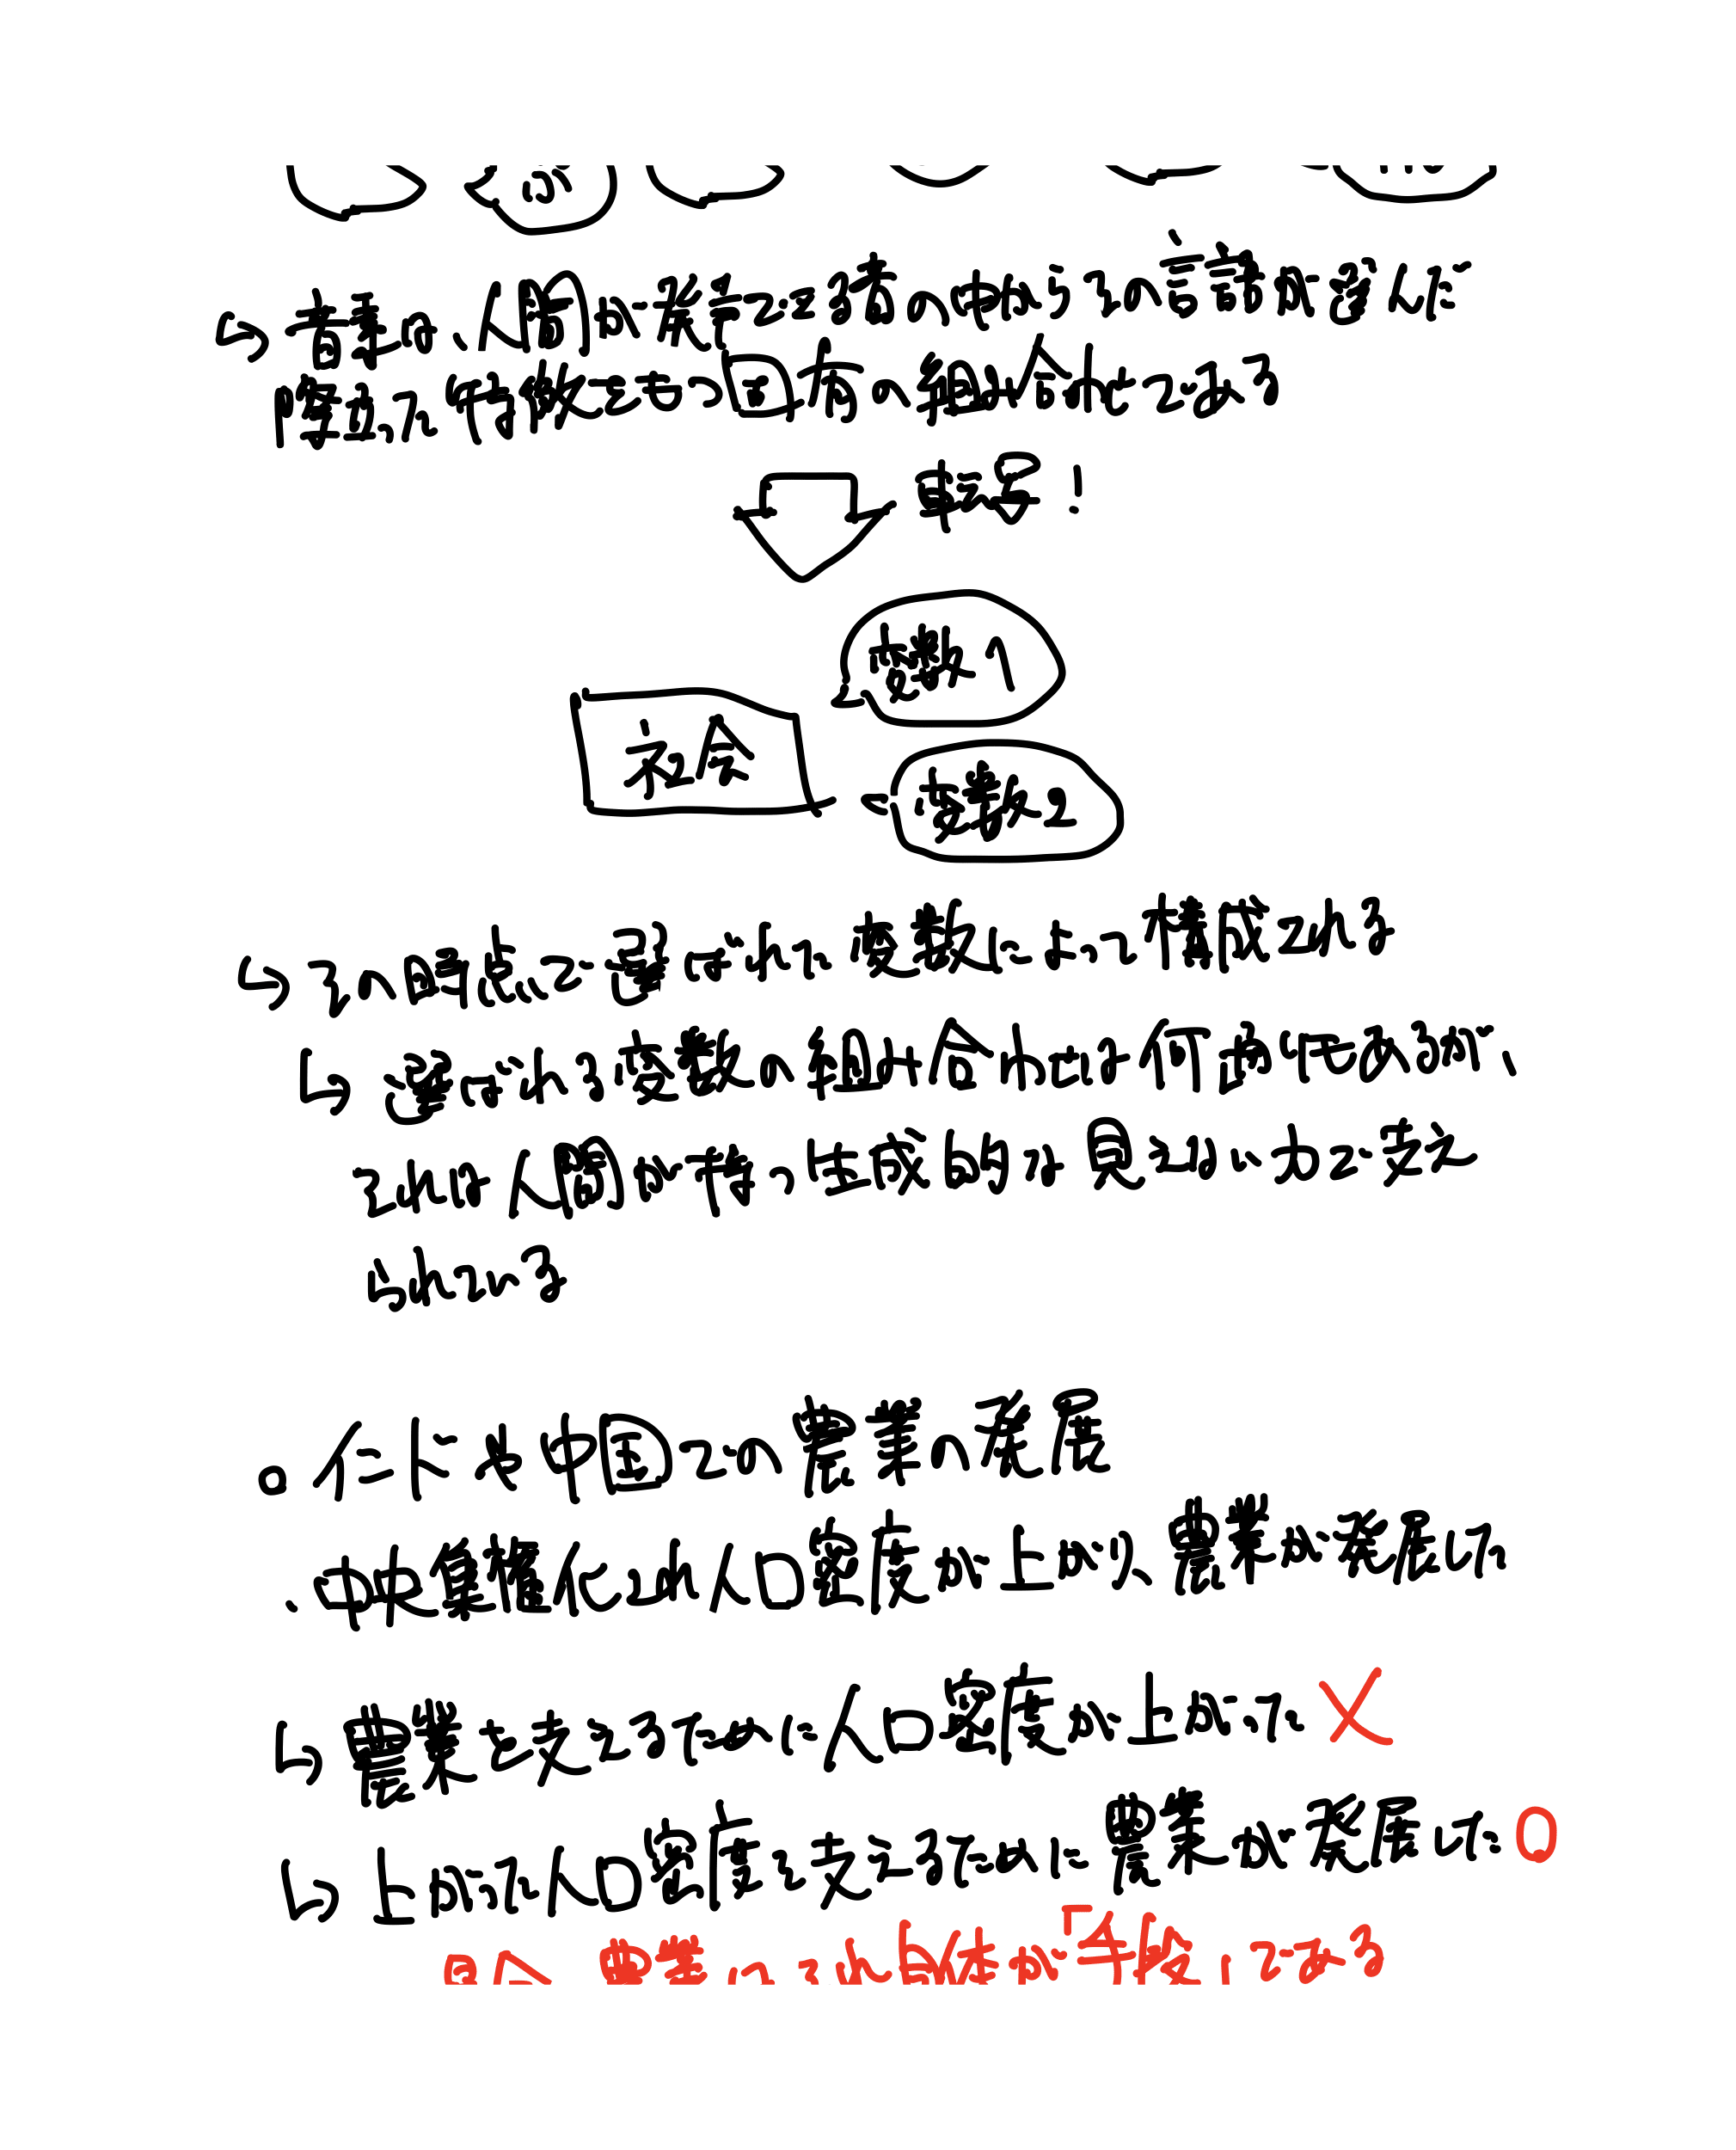 ↳ 言葉は、人間が発音できる音の中からその言語が選んだ
際立った特徴をもつ固有の組み合わせである
転号!
変数1
社会
変数2
↳ その時点で選ばれた変数によって構成される
↳ 選ばれる変数の組み合わせは何通りもあるが、
それは人間が持つ生成的な見えない力で支え
られている
。インドや中国での農業の発展
・中央集権化され人口密度が上がり、農業が発展した
↳ 農業を支えるために人口密度が上がった ×
↳ 上がった人口密度を支えるために農業が発展した ○
農業 それ自体が「手段」である